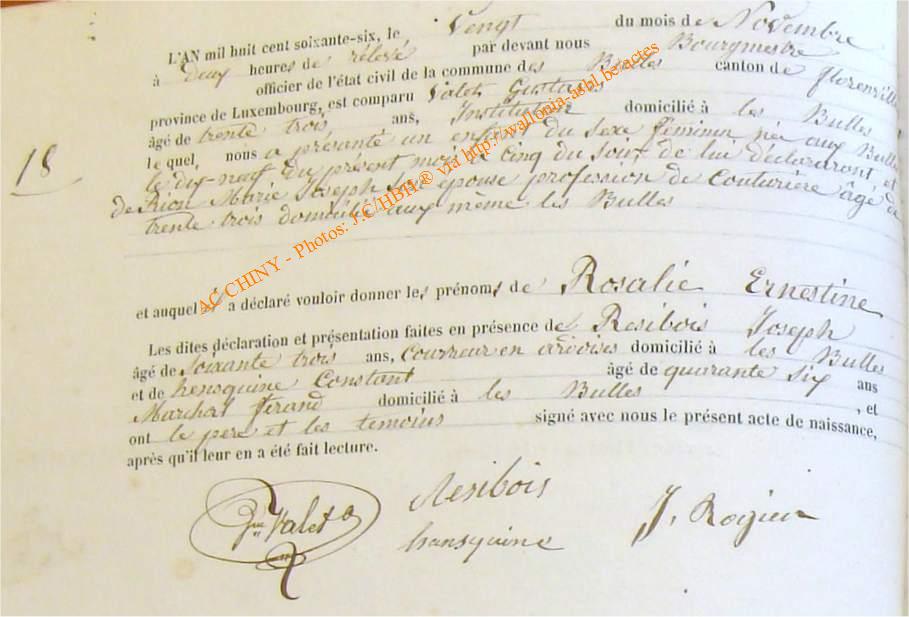 L'AN mil huit cent soixante-six, le Vengt du mois de Novembre
à Deux heures de rélevé par devant nous Bourgmestre
officier de l'état civil de la commune des Bulles canton de florenville
province de Luxembourg, est comparu Valet Gustave
âgé de trente trois ans, Instituteur domicilié à les Bulles
le quel, nous a présanté un enfant du sexe féminin née aux Bulles
le dix-neuf du présent mois à cinq du soir de lui déclararont, et
de Rion Marie Joseph son épouse profession de Couturière âgé de
trente trois domicilié aux même les Bulles
18
et auquel a déclaré vouloir donner les prénoms de Rosalie Ernestine
Les dites déclaration et présentation faites en présence de Resibois Joseph
âgé de Soixante trois ans, Couvreur en ardoises domicilié à les Bulles
et de hensquine Constant âgé de quarante six ans
Marchat ferand domicilié à les Bulles , et
ont le père et les temoins signé avec nous le présent acte de naissance,
après qu'il leur en a été fait lecture.
Valet
Resibois
hansquine
J. Rogier
AC CHINY - Photos: J.C/HBH® via http://wallonia-asbl.be/actes